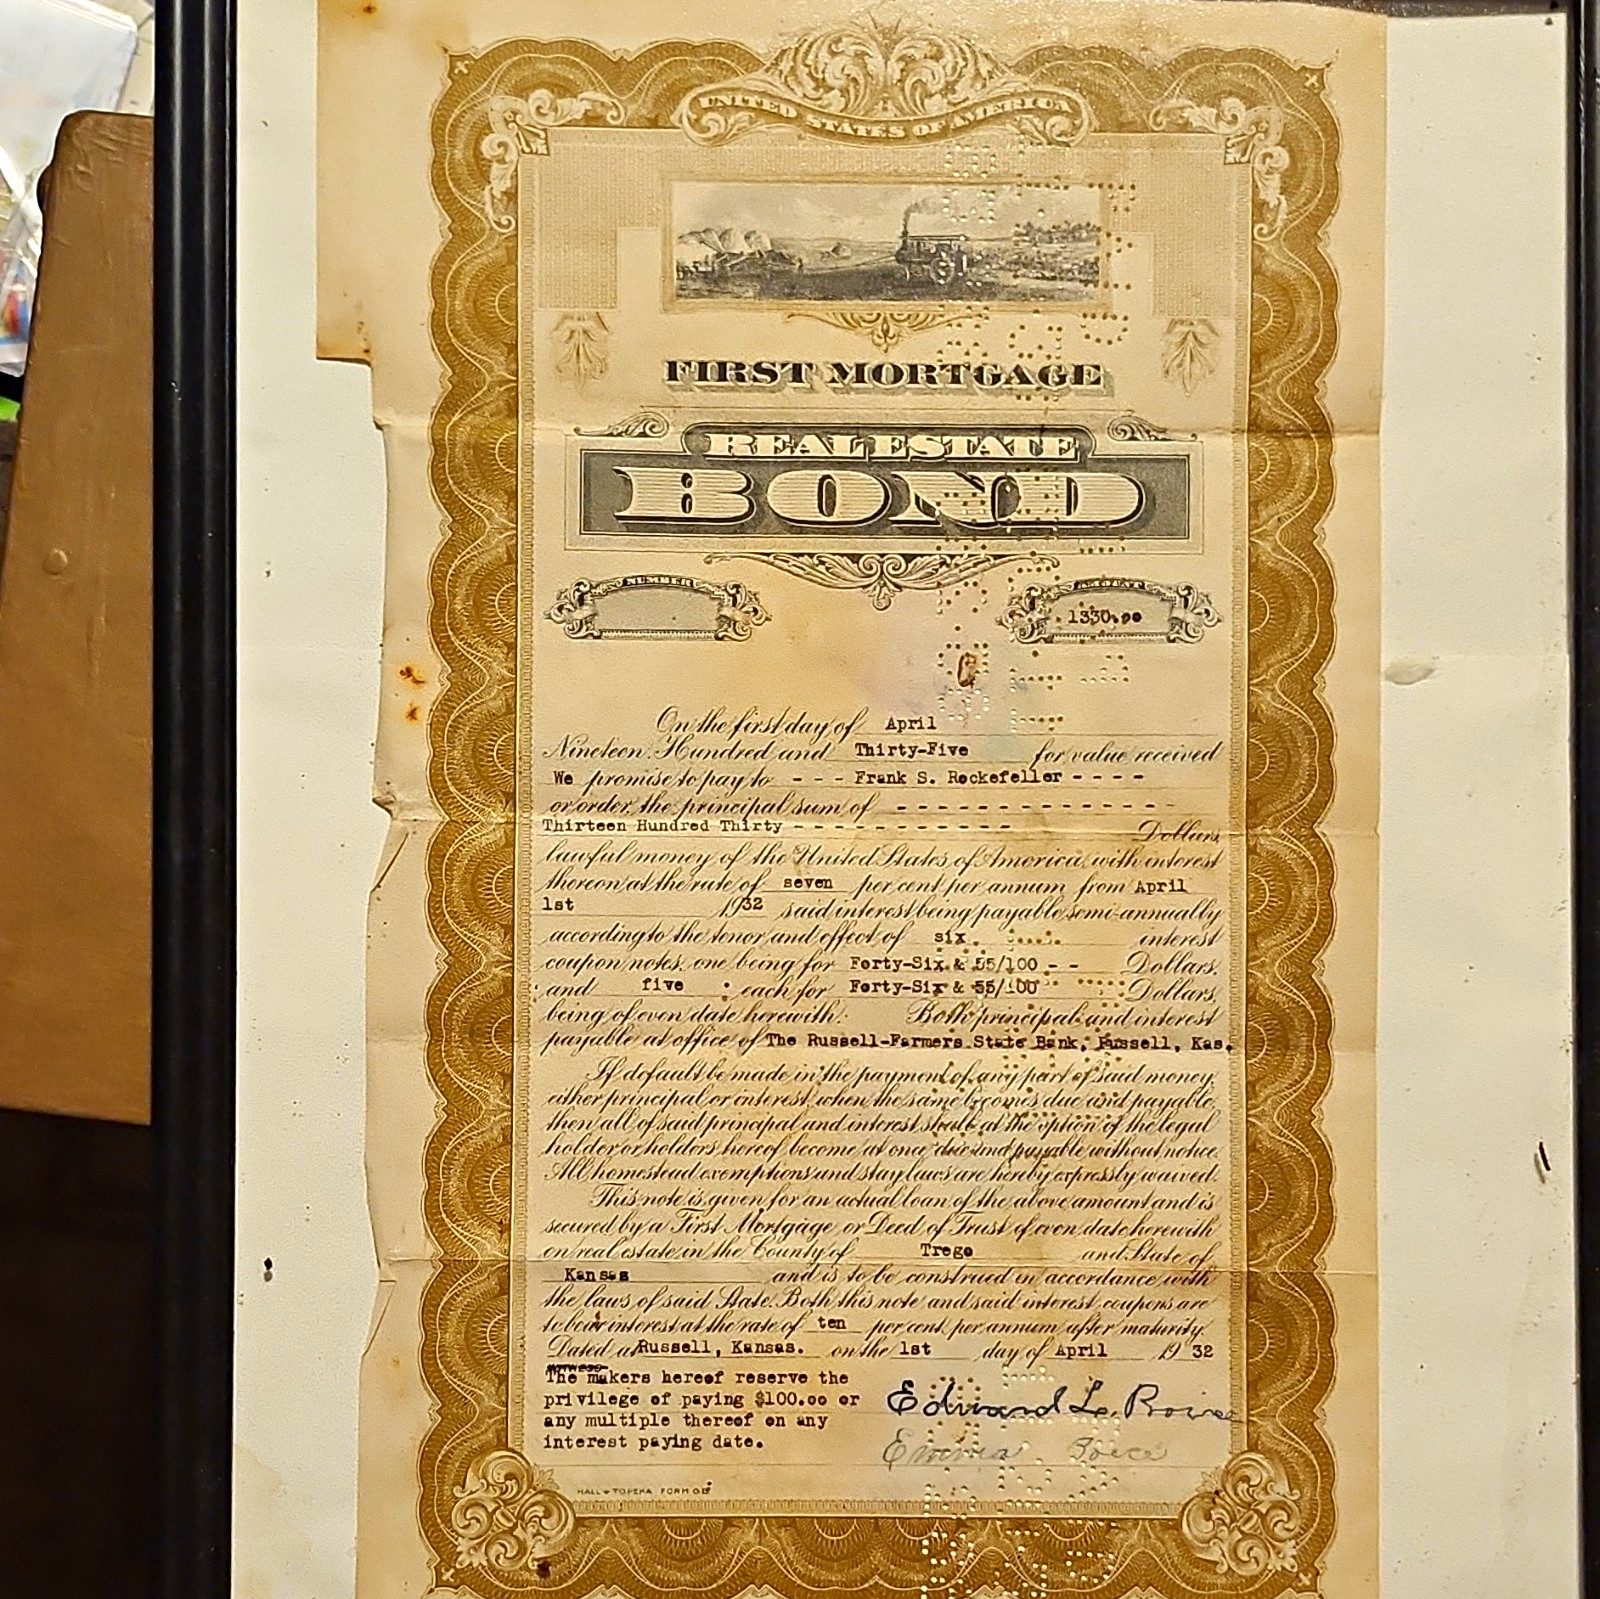 UNITED STATES OF AMERICA
FIRST MORTGAGE
REAL ESTATE
BOND
NUMBER
AMOUNT
1330.00
On the first day of April
Nineteen Hundred and Thirty-Five for value received
We promise to pay to - - - Frank S. Rockefeller - - - -
or order, the principal sum of - - - - - - - - - - - - - -
Thirteen Hundred Thirty - - - - - - - - - - - Dollars,
lawful money of the United States of America, with interest
thereon at the rate of seven per cent per annum from April
1st 1932 said interest being payable semi-annually
according to the tenor and effect of six interest
coupon notes, one being for Forty-Six & 55/100 - - Dollars,
and five each for Forty-Six & 55/100 Dollars,
being of even date herewith. Both principal and interest
payable at office of The Russell-Farmers State Bank, Russell, Kas.
If default be made in the payment of any part of said money,
either principal or interest, when the same becomes due and payable,
then all of said principal and interest shall at the option of the legal
holder or holders hereof become at once due and payable without notice.
All homestead exemptions and stay laws are hereby expressly waived.
This note is given for an actual loan of the above amount and is
secured by a First Mortgage or Deed of Trust of even date herewith
on real estate in the County of Trego and State of
Kansas and is to be construed in accordance with
the laws of said State. Both this note and said interest coupons are
to bear interest at the rate of ten per cent per annum after maturity.
Dated at Russell, Kansas. on the 1st day of April 1932
The makers hereof reserve the
privilege of paying $100.00 or
any multiple thereof on any
interest paying date.
Edward L.
Emma
HALL TOPEKA FORM